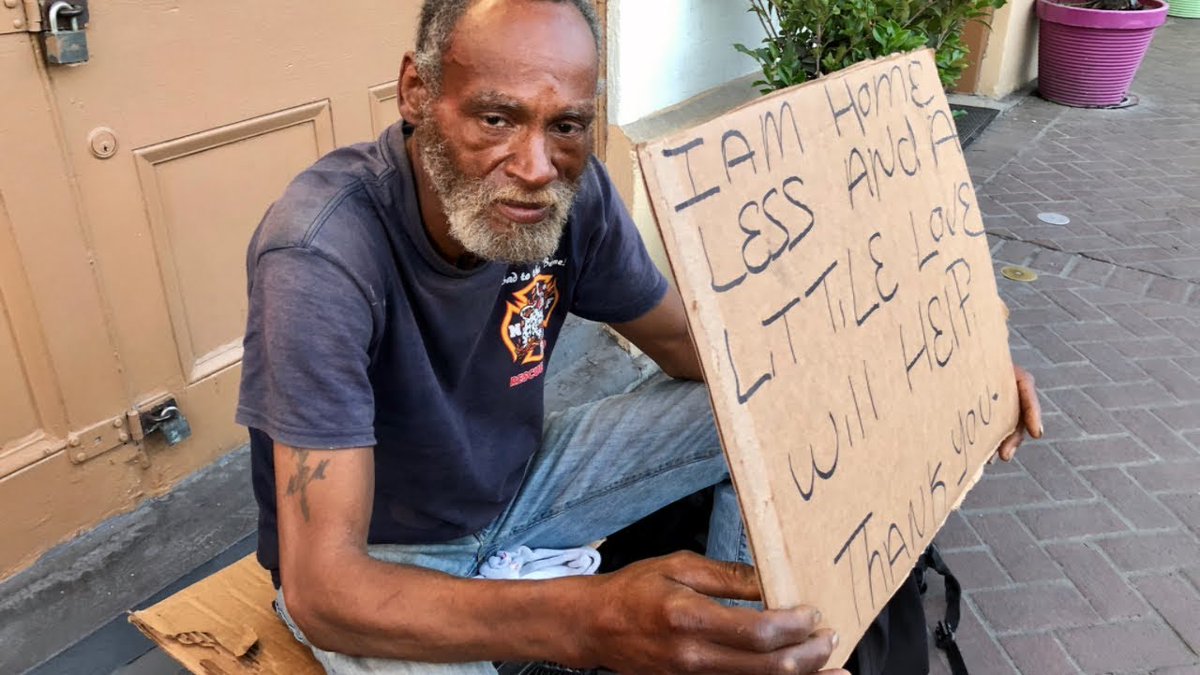 I AM HOME
LESS AND A
LITTLE LOVE
Will HElP
THANK YOU.
N F
RESCUE